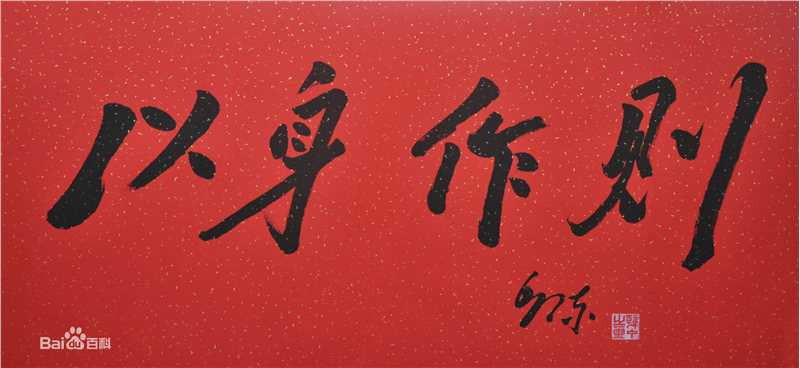 以身作则
Bai du 百科